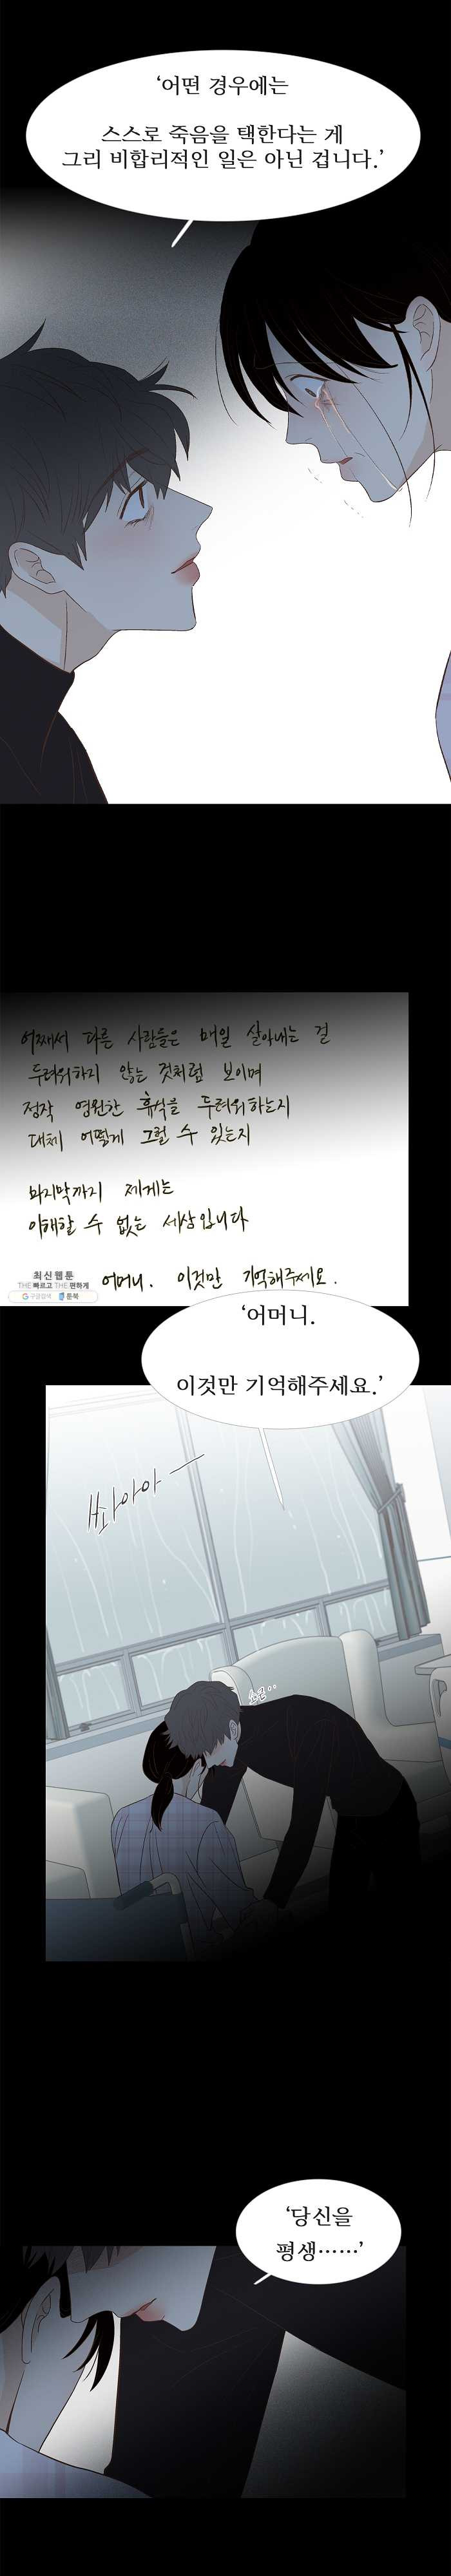 ‘어떤 경우에는
스스로 죽음을 택한다는 게
그리 비합리적인 일은 아닌 겁니다.’
어째서 다른 사람들은 매일 살아내는 걸
두려워하지 않는 것처럼 보이며
정작 영원한 휴식을 두려워하는지
대체 어떻게 그럴 수 있는지
마지막까지 제게는
이해할 수 없는 세상입니다
어머니. 이것만 기억해주세요.
최신웹툰
THE 빠르고 THE 편하게
구글검색 툰북
‘어머니.
이것만 기억해주세요.’
쏴아아
‘당신을
평생……’